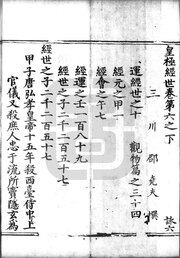 皇極經世卷第六之下
三川邵堯夫撰
運經世之十　觀物篇之三十四
經元之甲一
經會之午七
經運之壬一百八十九
經世之子二千二百五十七
經世之子二千二百五十七
甲子唐弘孝皇帝十五年殺西臺侍中上
官儀又殺庶人忠于流所竇隨玄為